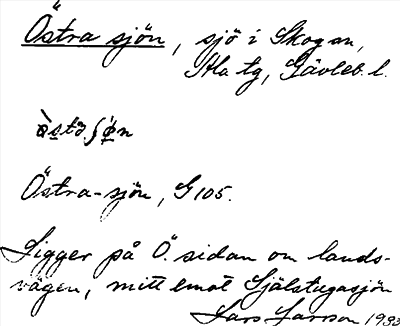 Östra sjön, sjö i Skogan,
Ala tg, Gävleb. l.
Östra-sjön, G105.
Ligger på Ö. sidan om lands-
vägen, mitt emot Själstugasjön
Lars Larsson 1933